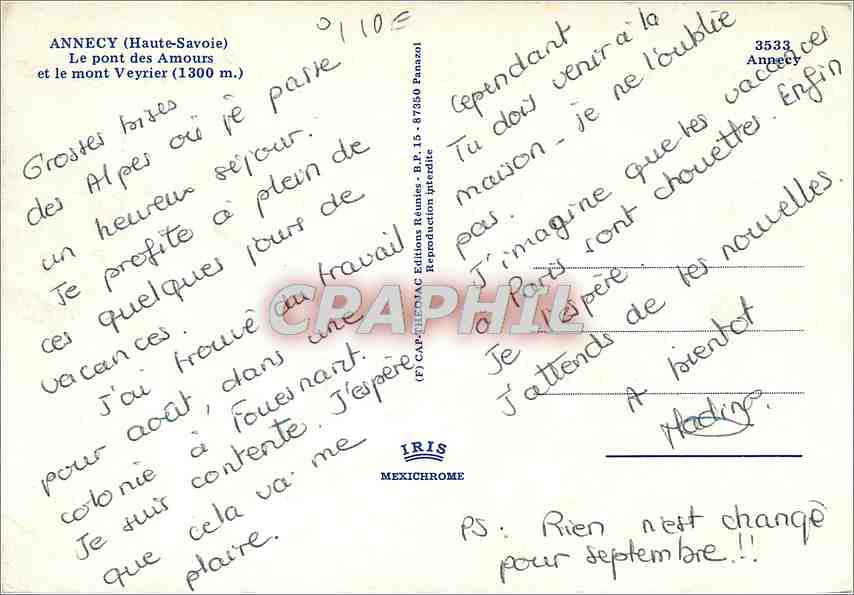 ANNECY (Haute-Savoie)
Le pont des Amours
et le mont Veyrier (1300 m.)
0,10€
3533
Annecy
Grosses bises
des Alpes où je passe
un heureux séjour.
Je profite à plein de
ces quelques jours de
vacances.
J'ai trouvé du travail
pour août, dans une
colonie à Fouesnant.
Je suis contente. J'espère
que cela va me
plaire.
(F) CAP-THEOJAC Editions Réunies - B.P. 15 - 87350 Panazol
Reproduction interdite
CPAPHIL
IRIS
MEXICHROME
Cependant
Tu dois venir à la
maison - je ne l'oublie
pas.
J'imagine que tes vacances
à Paris sont chouettes. Enfin
Je l'espère.
J'attends de tes nouvelles.
A bientot
Nadine.
PS : Rien n'est changé
pour septembre.!!